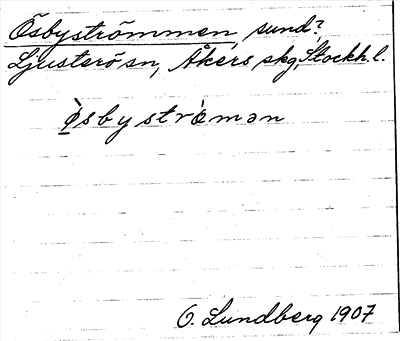 Ösbyströmmen, sund?
Ljusterö sn, Åkers skg, Stockh. l.
ø̀sbystrø̀mən
O. Lundberg 1907